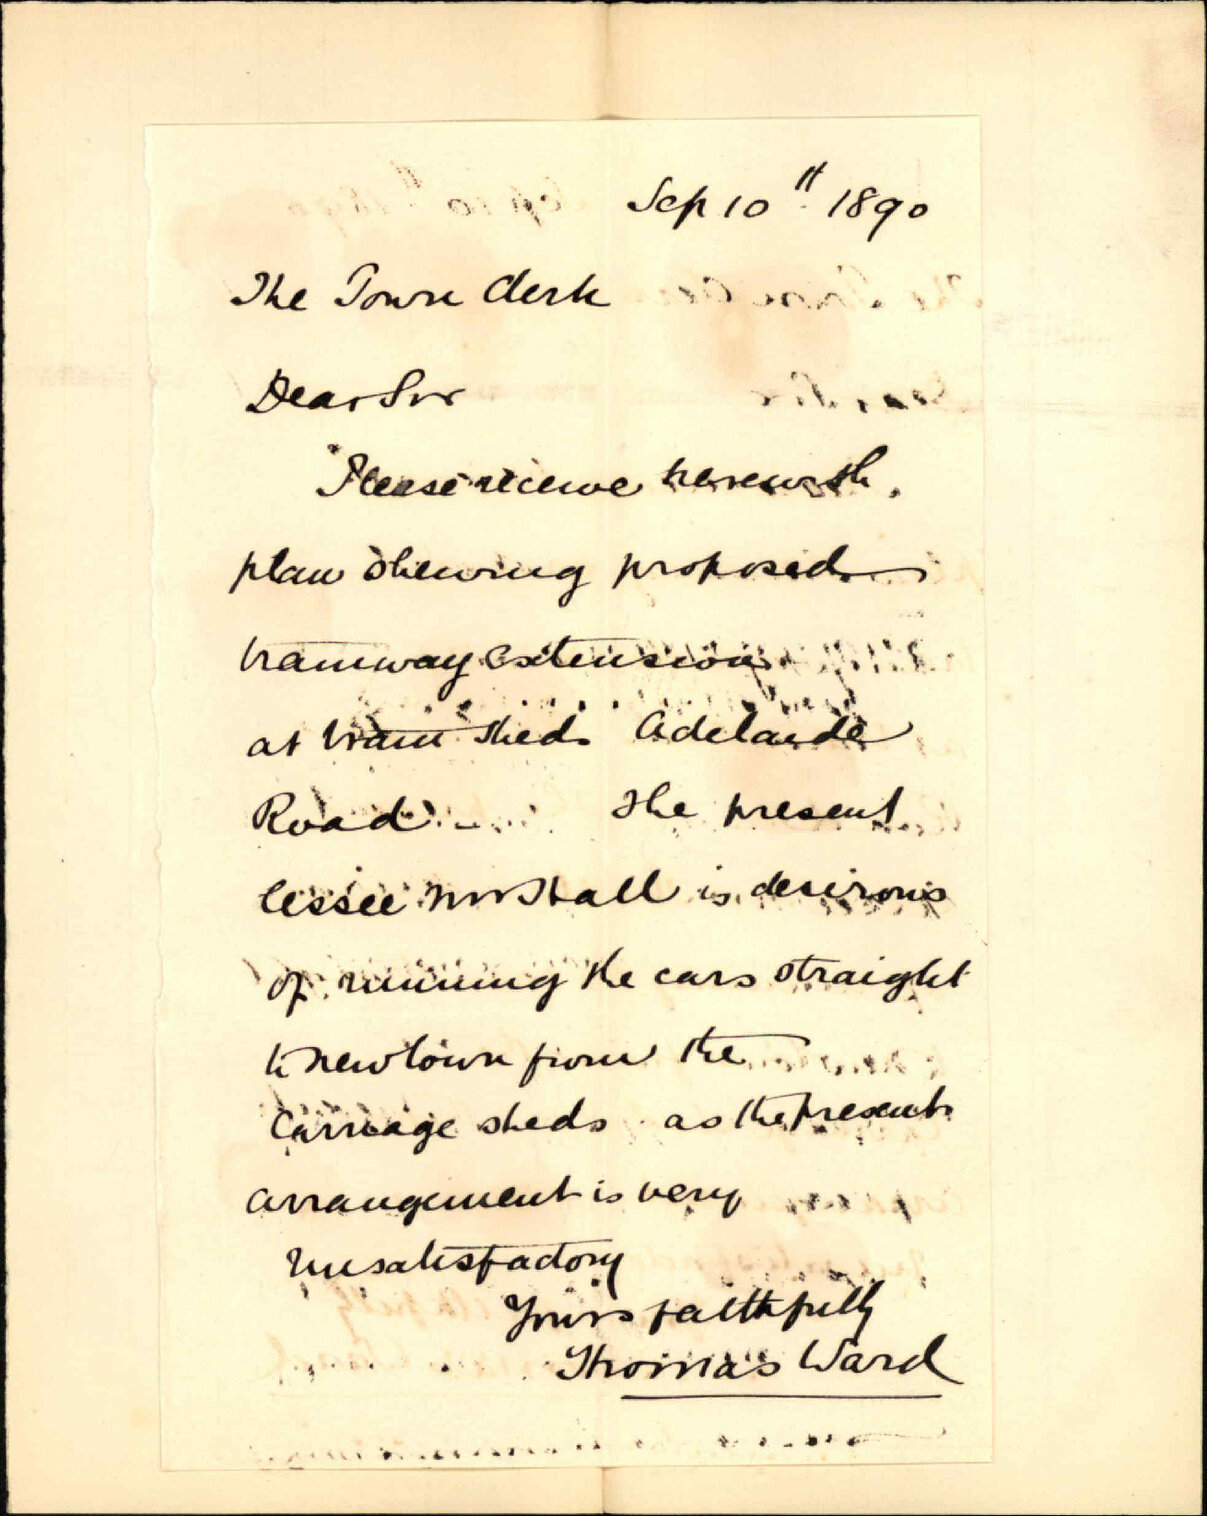 Sep 10th 1890
The Town Clerk
Dear Sir
Please receive herewith
plan shewing proposed
tramway extension
at tram sheds Adelaide
Road. The present
lessee Mr Hall is desirous
of running the cars straight
to Newtown from the
Carriage sheds as the present
arrangement is very
unsatisfactory
Yours faithfully
Thomas Ward